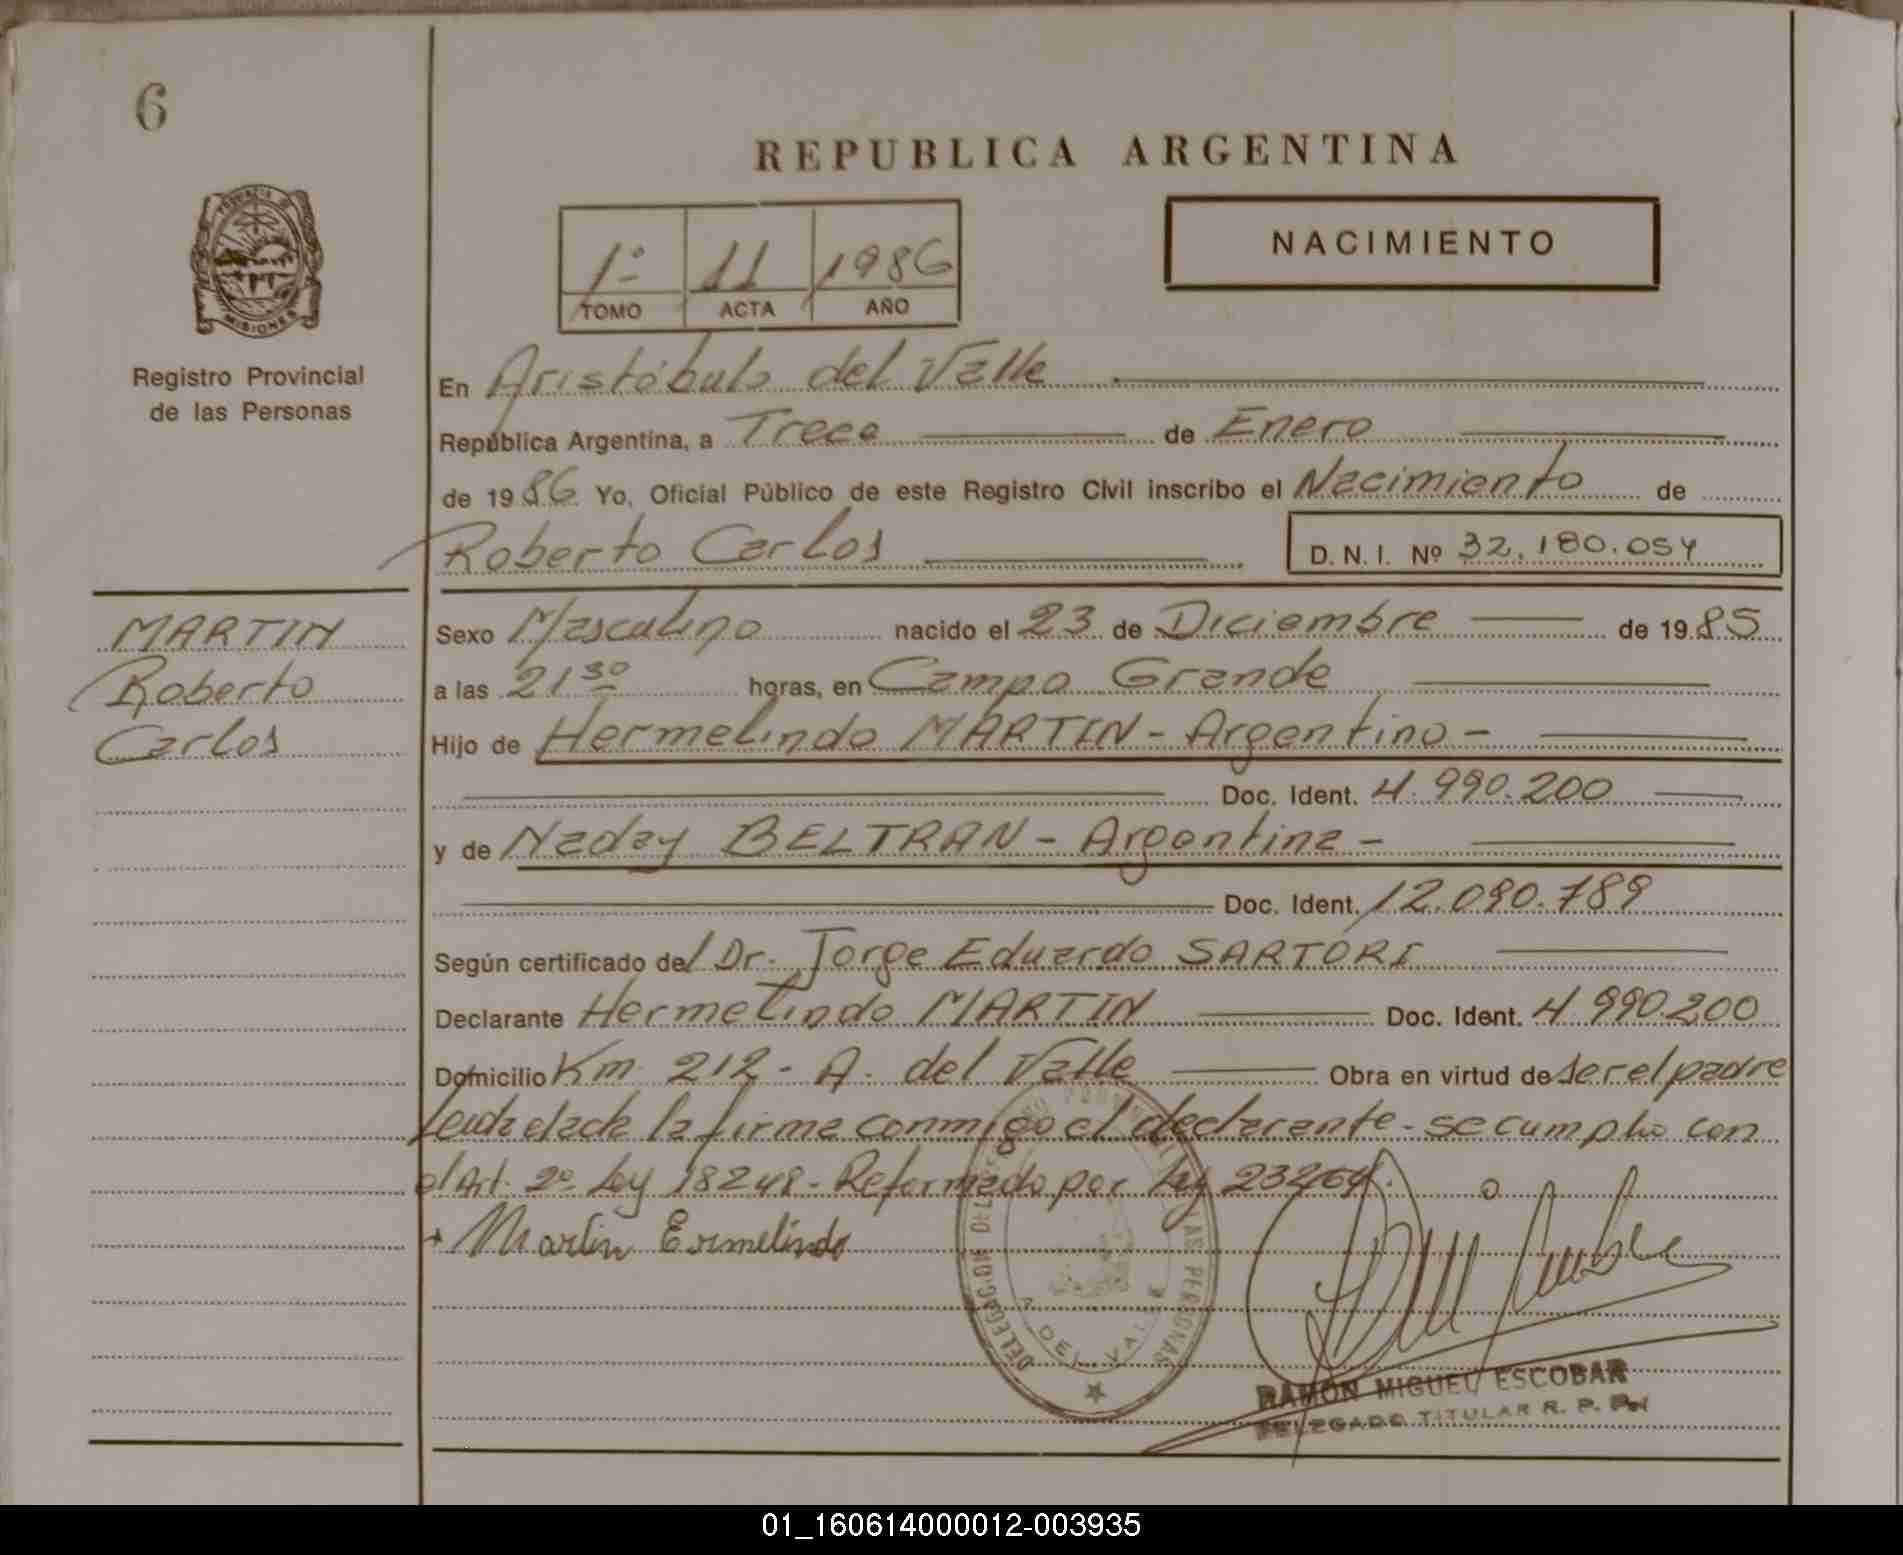 6
REPUBLICA ARGENTINA
1º 11 1986
TOMO ACTA AÑO
NACIMIENTO
PROVINCIA DE
MISIONES
Registro Provincial
de las Personas
En Aristóbulo del Valle
República Argentina, a Trece de Enero
de 1986 Yo, Oficial Público de este Registro Civil inscribo el Nacimiento de
Roberto Carlos D.N.I. Nº 32.180.054
MARTIN
Roberto
Carlos
Sexo Masculino nacido el 23 de Diciembre de 1985
a las 21 30 horas, en Campo Grande
Hijo de Hermelindo MARTIN - Argentino -
Doc. Ident. 4.990.200
y de Naday BELTRAN - Argentina -
Doc. Ident. 12.090.789
Según certificado del Dr. Jorge Eduardo SARTORI
Declarante Hermelindo MARTIN Doc. Ident. 4.990.200
Domicilio Km. 212 - A. del Valle Obra en virtud de ser el padre
Leida el acta la firma conmigo el declarante - se cumplio con
el Art. 2º Ley 18248 - Reformado por Ley 23264.
Martin Ermelindo
DELEGACION DEL REGISTRO PROVINCIAL DE LAS PERSONAS
A. DEL VALLE
RAMON MIGUEL ESCOBAR
DELEGADO TITULAR R. P. P.
01_160614000012-003935